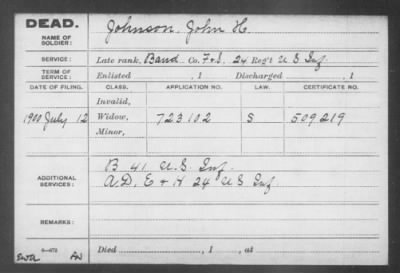 DEAD.
NAME OF SOLDIER: Johnson, John H.
SERVICE: Late rank, Band Co. F&S, 24 Reg't U S Inf
TERM OF SERVICE: Enlisted , 1 Discharged , 1
DATE OF FILING. CLASS. APPLICATION NO. LAW. CERTIFICATE NO.
Invalid,
1900 July 12 Widow, 723102 S 509219
Minor,
ADDITIONAL SERVICES: B 41 U.S. Inf.
A, D, E & H 24 U S Inf
REMARKS:
Died , 1 , at